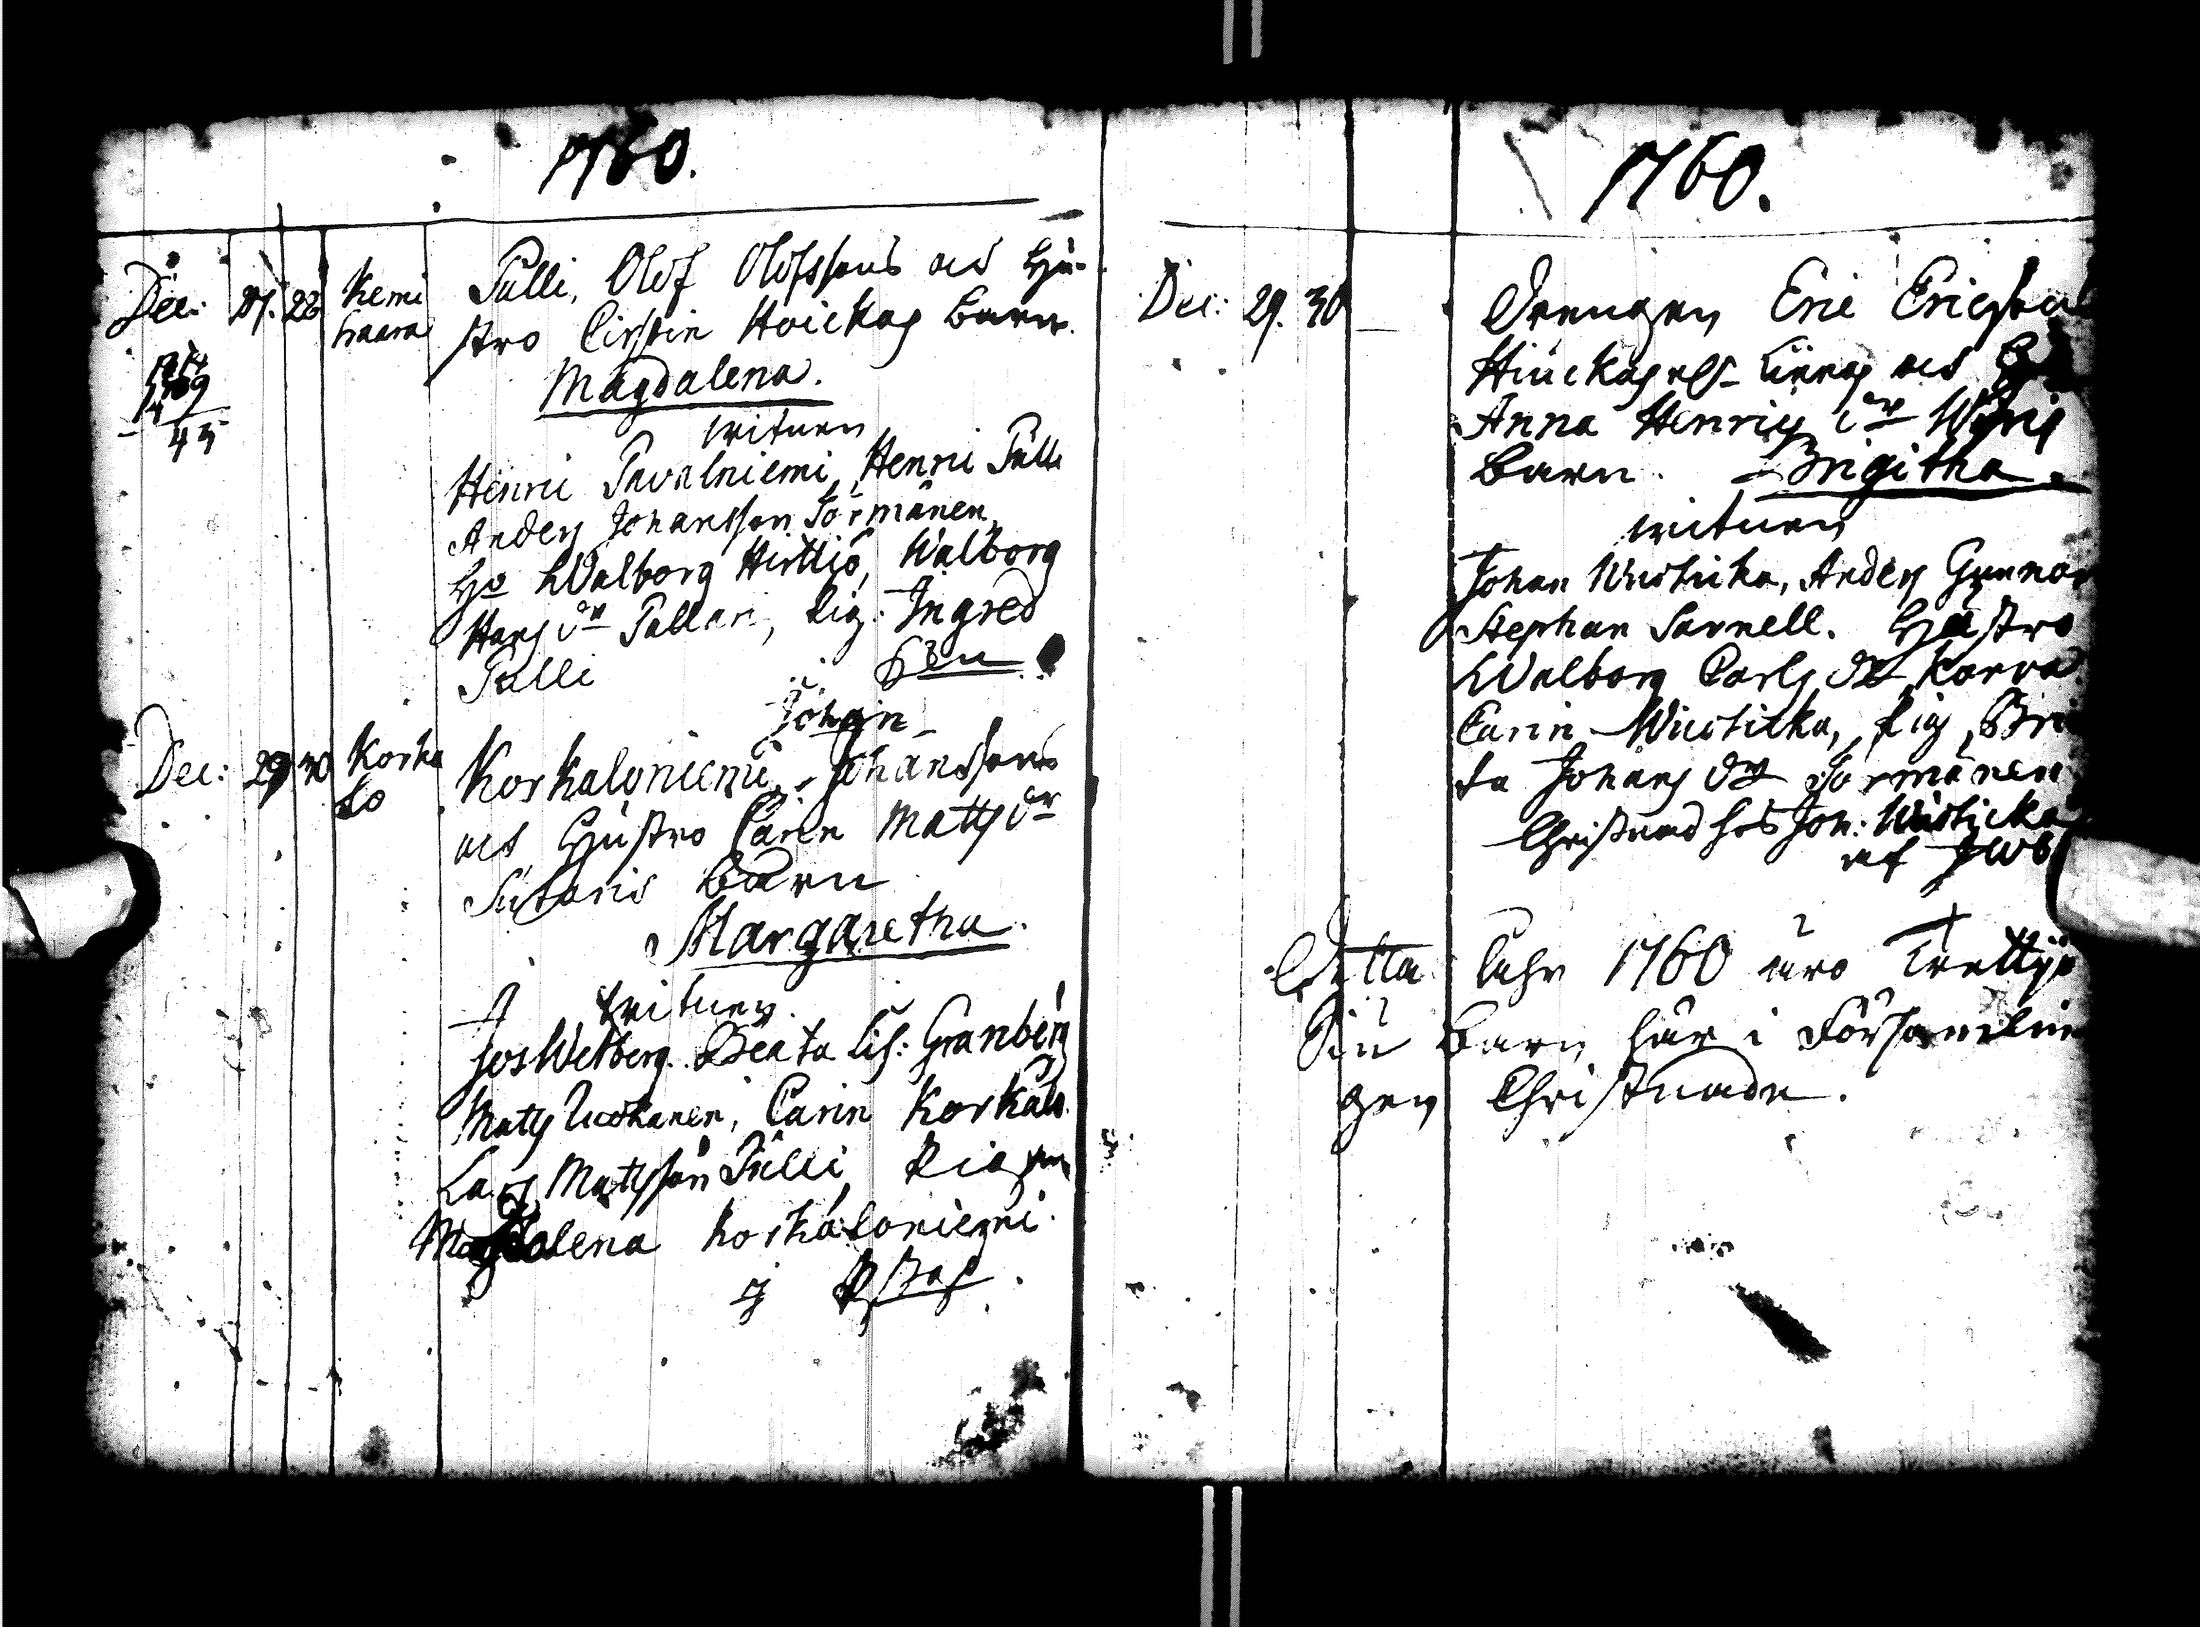 1760.
Dec: 27. 28 Kemi haara
Pulli, Olof Olofssons och Hu-
stro Cirstin Hoickas Barn.
Magdalena.
Witnen
Henric Pavalniemi, Henric Pulli
Anders Johansson Törmänen
H:o Walborg Hirttiö, Walborg
Hans dr Pallari, Pig: Ingred
Pulli
Johan
Dec: 29 30 Korka lo
Korkaloniemi, Johanssons
och Hustro Carin Matts dr
Sutaris Barn
Margaretha.
Witnen.
Jos Wetberg. Beata Lis: Granberg
Matts Mickanen, Carin Korkalo.
Lars Mattsson Pulli, Pigan
Magdalena Korkaloniemi.
1760.
Dec: 29. 30
Drengen Eric Ericssons
och
Anna Henrics dr
Barn. Brigitha.
Witnen
Johan Wiicticka, Anders Gunnar
Stephan Sarnell. Hustro
Walborg Carls dr Korva
Carin Wiicticka, Pig, Bri
ta Johans dr Törmänen
Christnad hos Joh: Wiicticka
af
Detta Åhr 1760 äro Trettijo
Siu Barn här i Församlin
gen Christnade.